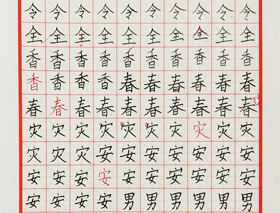 令令令令令令令令令令
全全全全全全全全全全
香香香香香香香香香香
香香香香春春春春春春
春春春春春春春春春春
灾灾灾灾灾灾灾灾灾灾
灾灾灾安安安安安安安
安安安安安安安安安安
安安安安男男男男男男